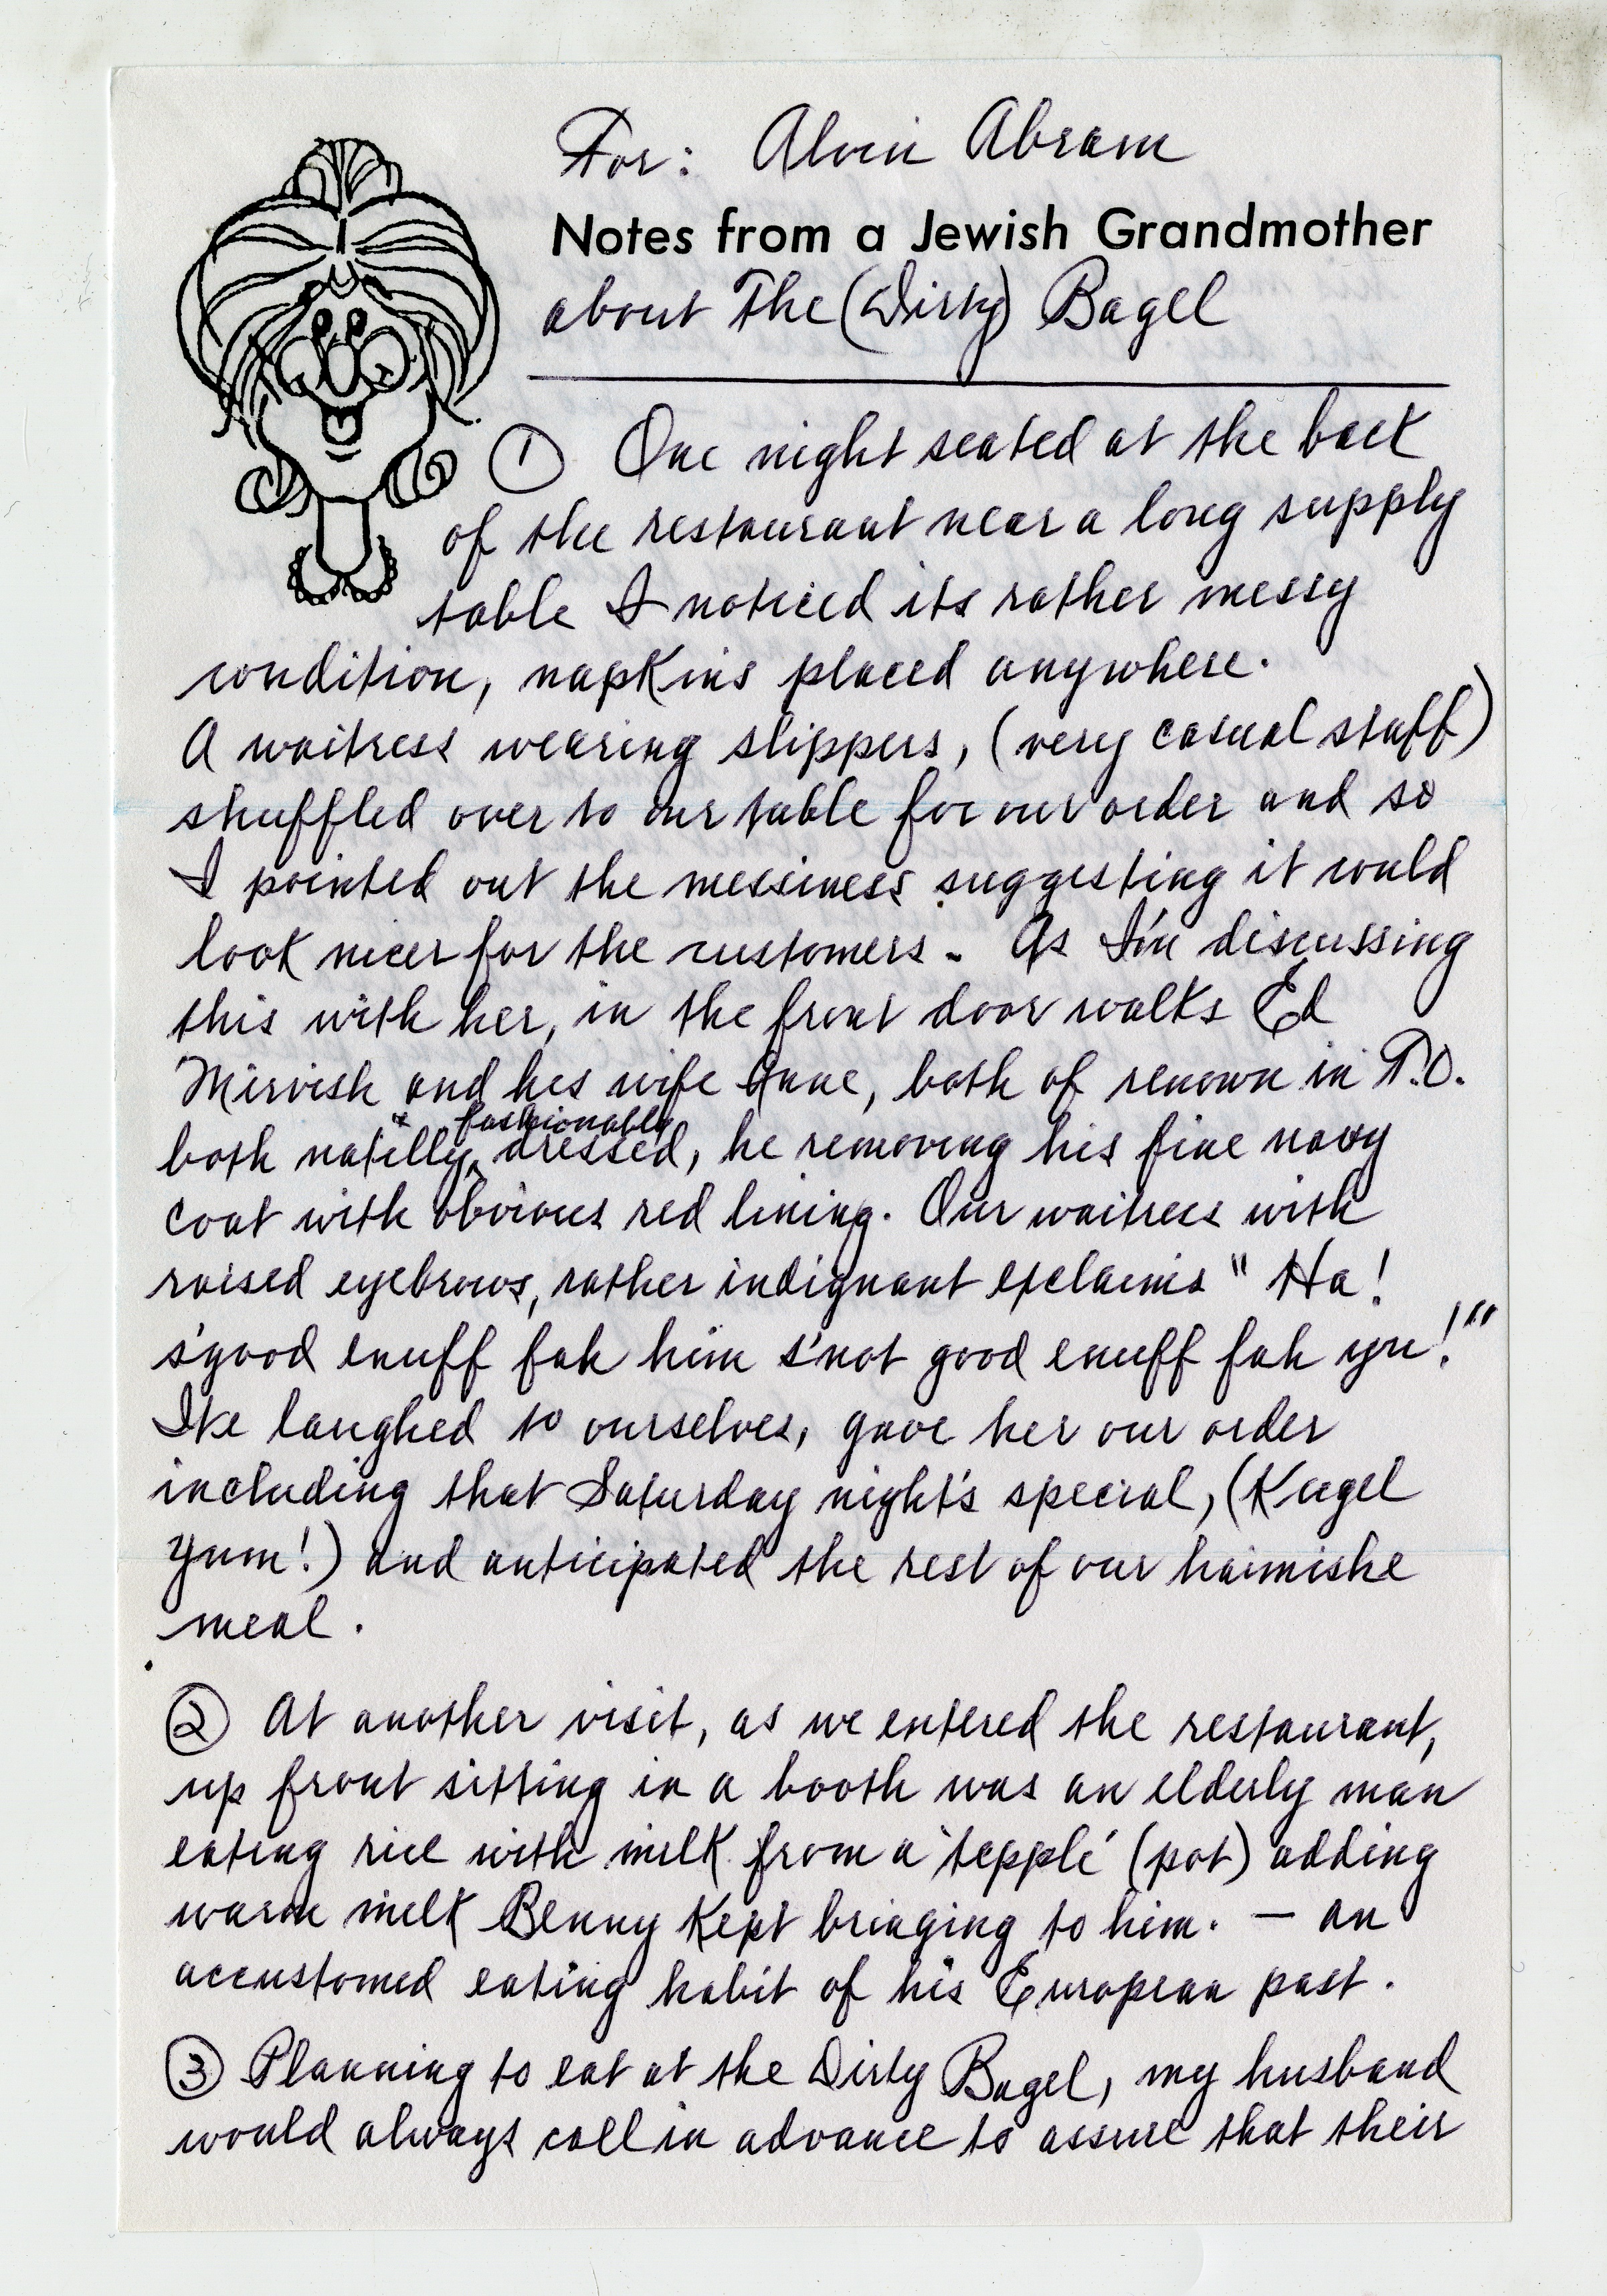 For: Alvin Abram
Notes from a Jewish Grandmother
about The (Dirty) Bagel
① One night seated at the back
of the restaurant near a long supply
table I noticed its rather messy
condition, napkins placed anywhere.
A waitress wearing slippers, (very casual staff)
shuffled over to our table for our order and so
I pointed out the messiness suggesting it would
look nicer for the customers. As I'm discussing
this with her, in the front door walks Ed
Mirvish and his wife Anne, both of renown in T.O.
both natilly + fashionably dressed, he removing his fine navy
coat with obvious red lining. Our waitress with
raised eyebrows, rather indignant exclaims "Ha!
s'good enuff fah him s'not good enuff fah you!"
We laughed to ourselves, gave her our order
including that Saturday night's special, (Kugel
Yum!) and anticipated the rest of our haimishe
meal.
② At another visit, as we entered the restaurant,
up front sitting in a booth was an elderly man
eating rice with milk from a 'tepple' (pot) adding
warm milk Benny kept bringing to him. — an
accustomed eating habit of his European past.
③ Planning to eat at the Dirty Bagel, my husband
would always call in advance to assure that their